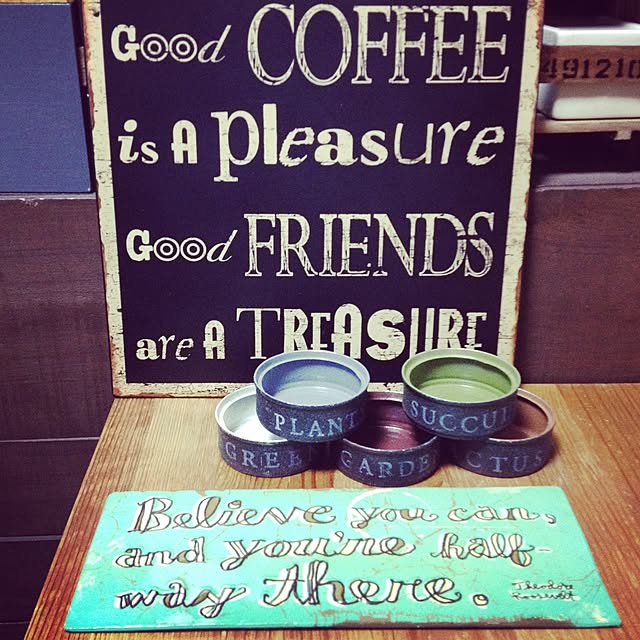 Good COFFEE
is A pleasure
Good FRIENDS
are A TREASURE
491210
PLANT
SUCCUL
GREE
GARDE
CTUS
Believe you can,
and you're half-
way there.
Theodore
Roosevelt